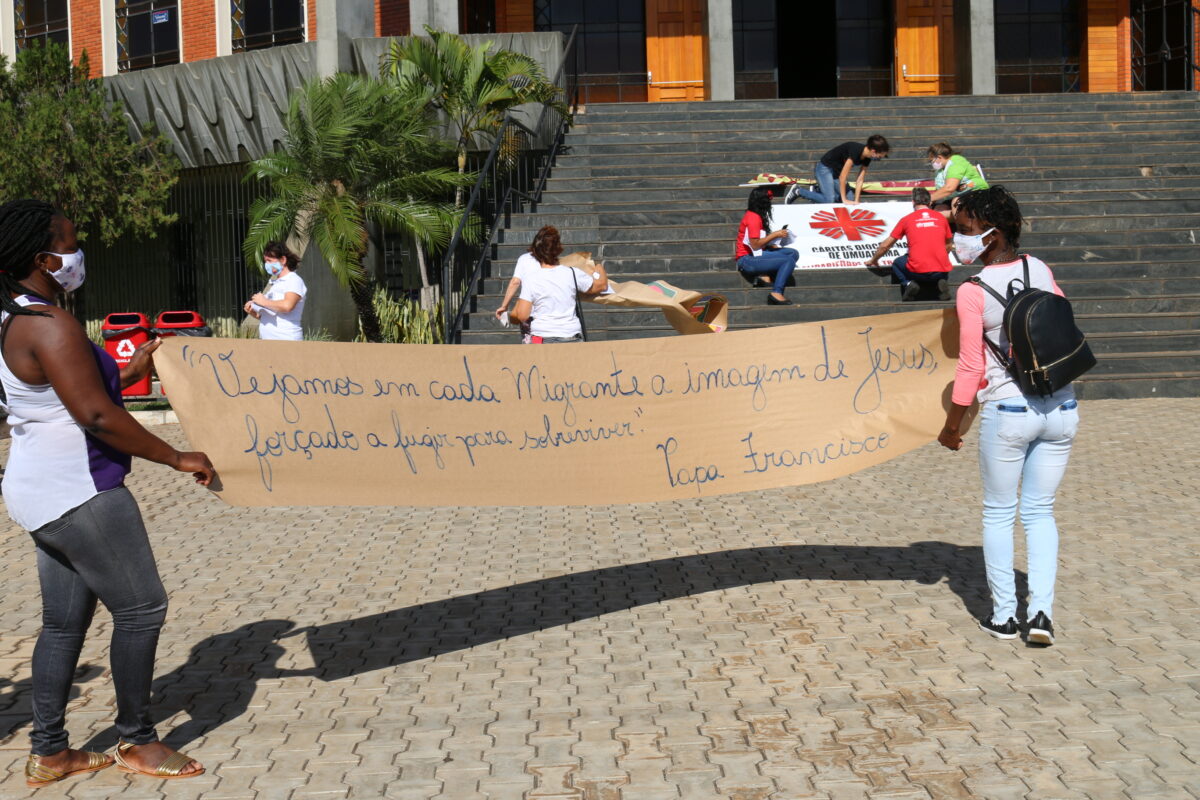 CÁRITAS DIOCESANA
DE UMUARAMA
"Vejamos em cada Migrante a imagem de Jesus,
forçado a fugir para sobreviver."
Papa Francisco